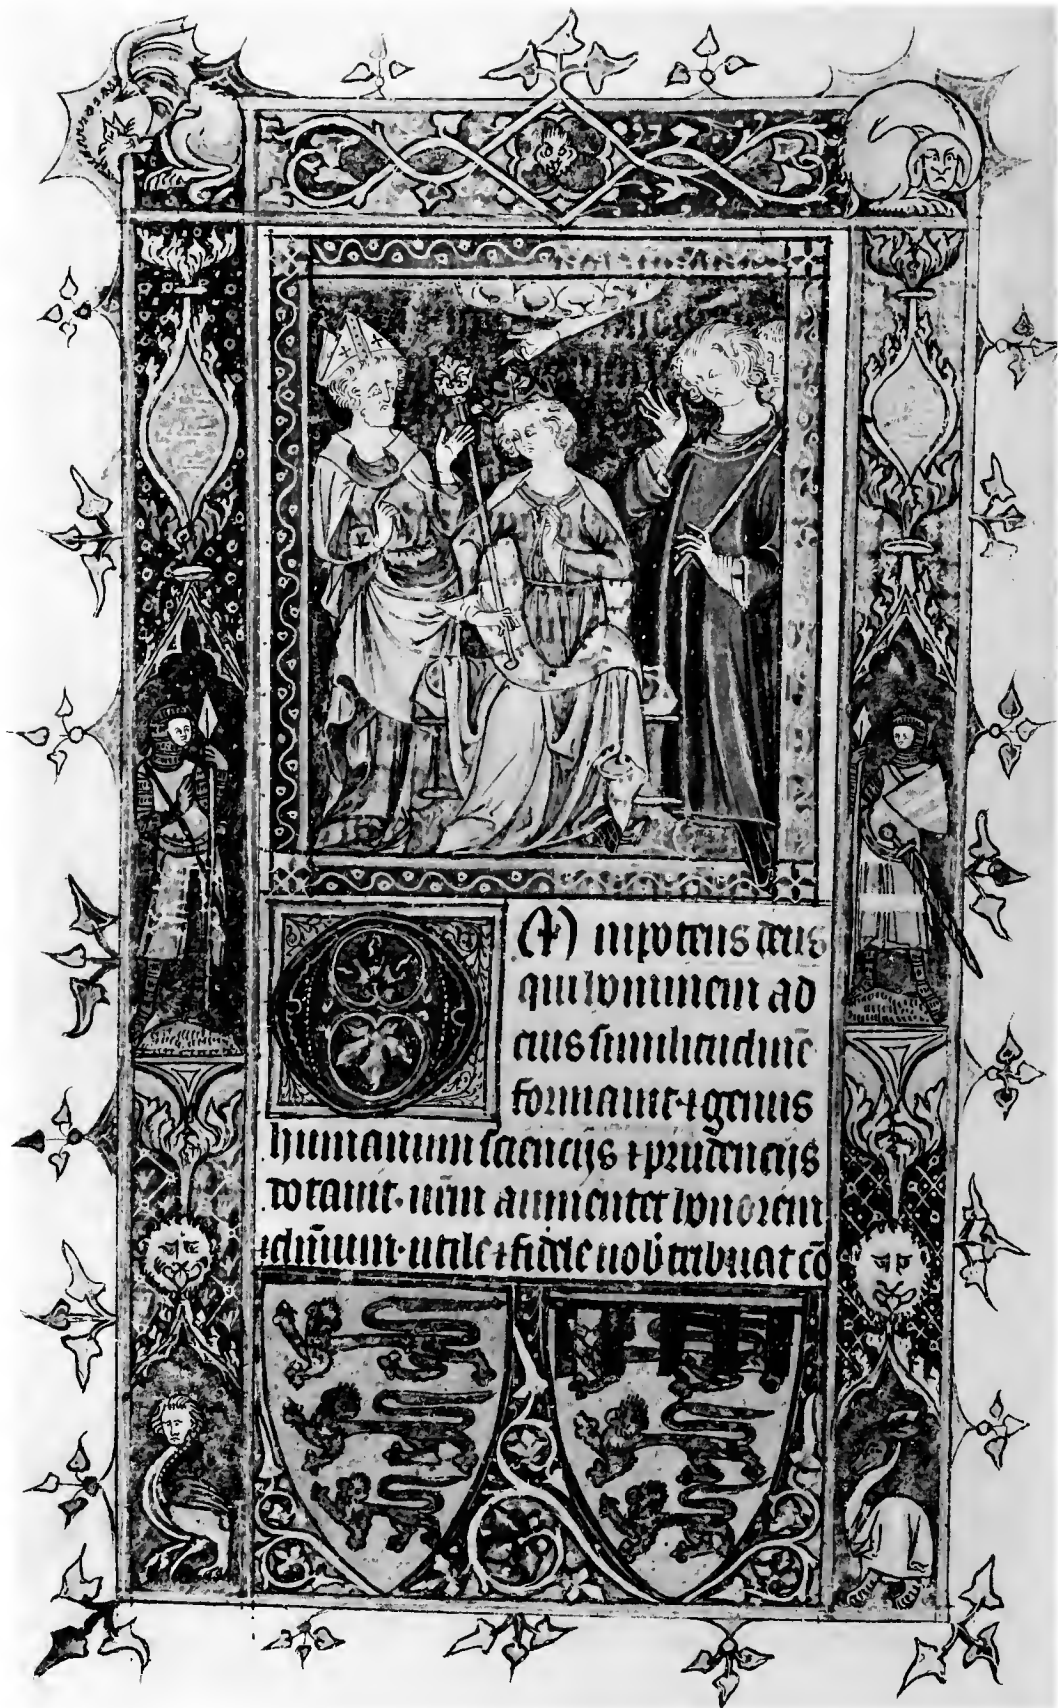 OM nipotens deus
qui hominem ad
eius similitudinē
formauit · ⁊ genus
humanum sciencijs ⁊ prudencijs
dotauit · ur̄m aumentet honorem
⁊ dn̄ium · utile ⁊ fidele uob̄ tribuat cō